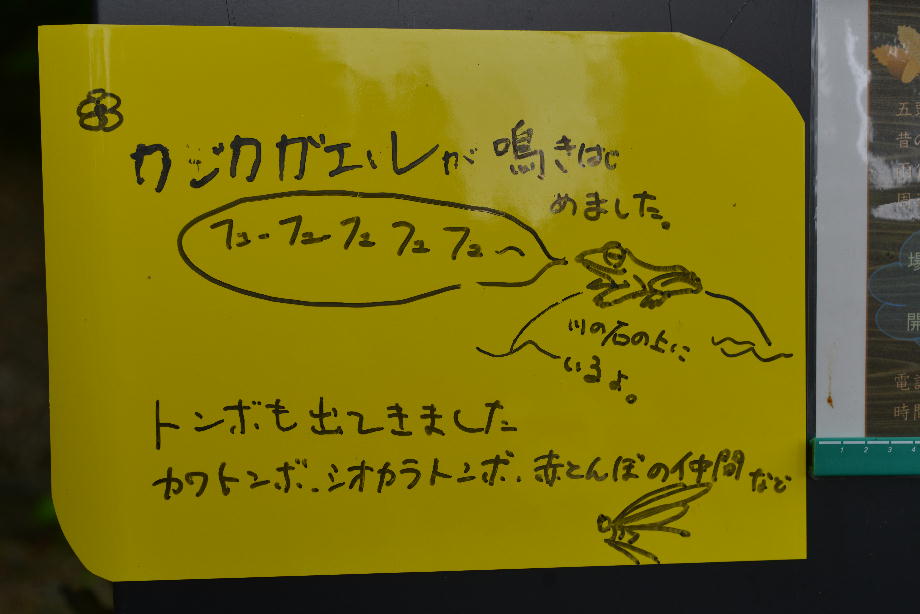 カジカガエルが鳴きはじ
めました。
フューフュフュフュフュ〜
川の石の上に
いるよ。
トンボも出てきました
カワトンボ、シオカラトンボ、赤とんぼの仲間など
五
昔の
雨
周
場
開
電話
時間
1 2 3 4